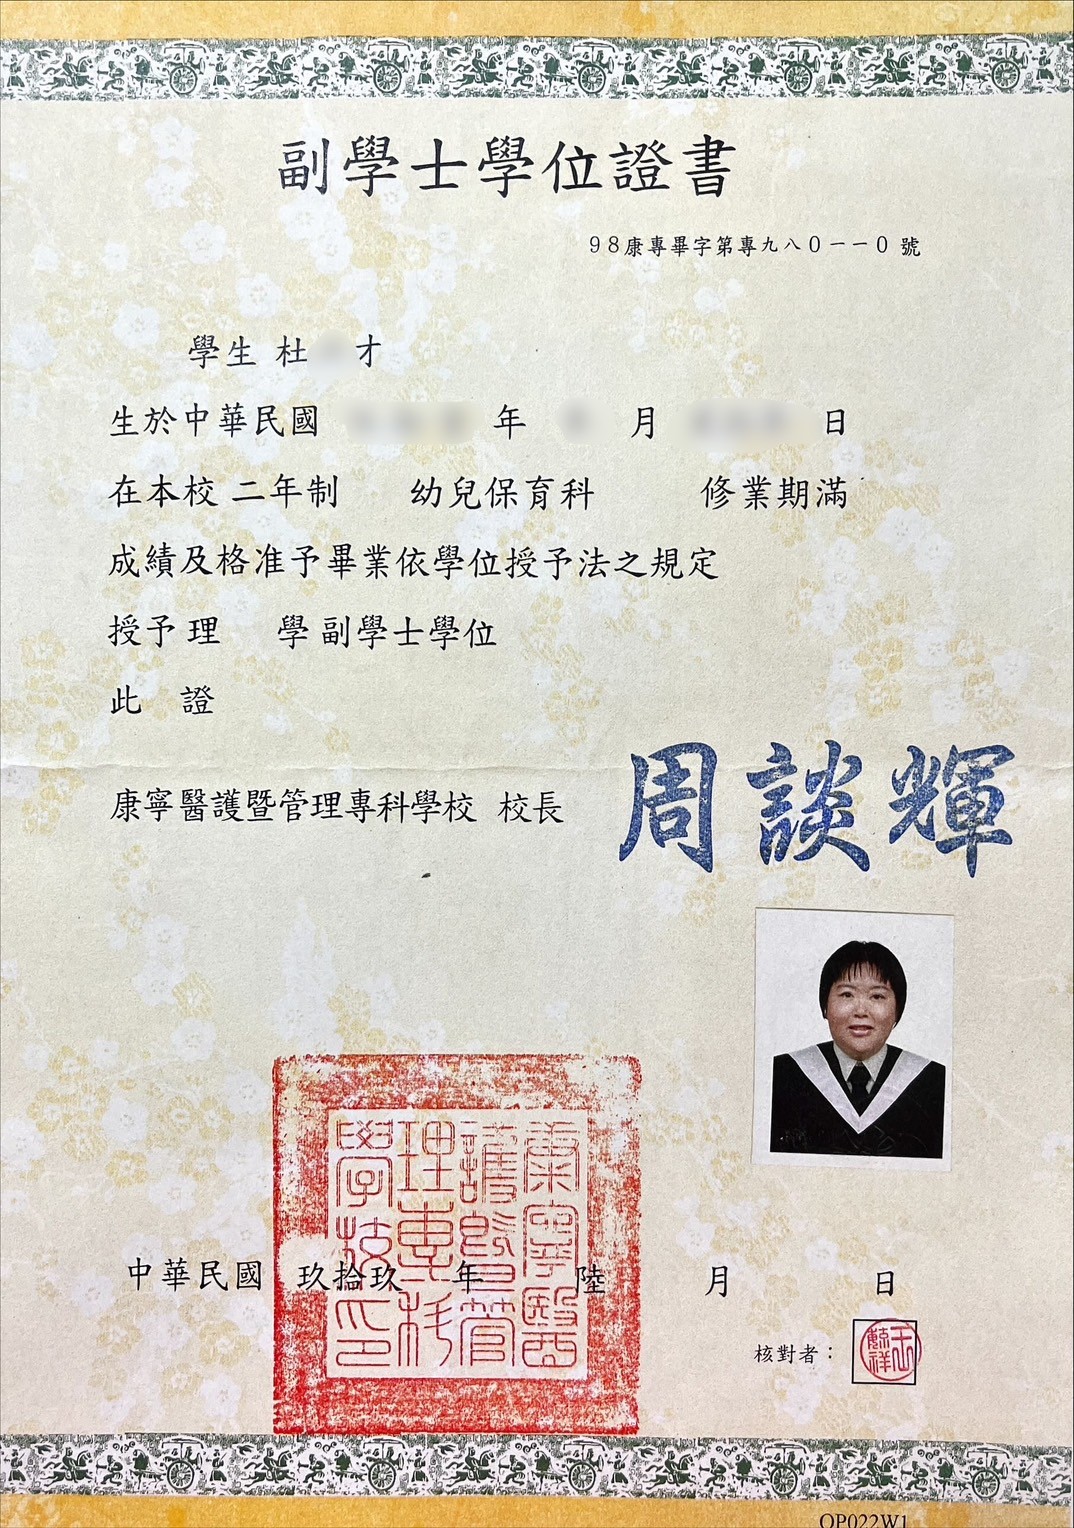 副學士學位證書
98康專畢字第專九八0一一0 號
學生 杜 才
生於中華民國 年 月 日
在本校 二年制 幼兒保育科 修業期滿
成績及格准予畢業依學位授予法之規定
授予 理 學 副學士學位
此 證
康寧醫護暨管理專科學校 校長 周談輝
康寧醫護暨管理專科學校印
中華民國 玖拾玖 年 陸 月 日
核對者：
OP022W1